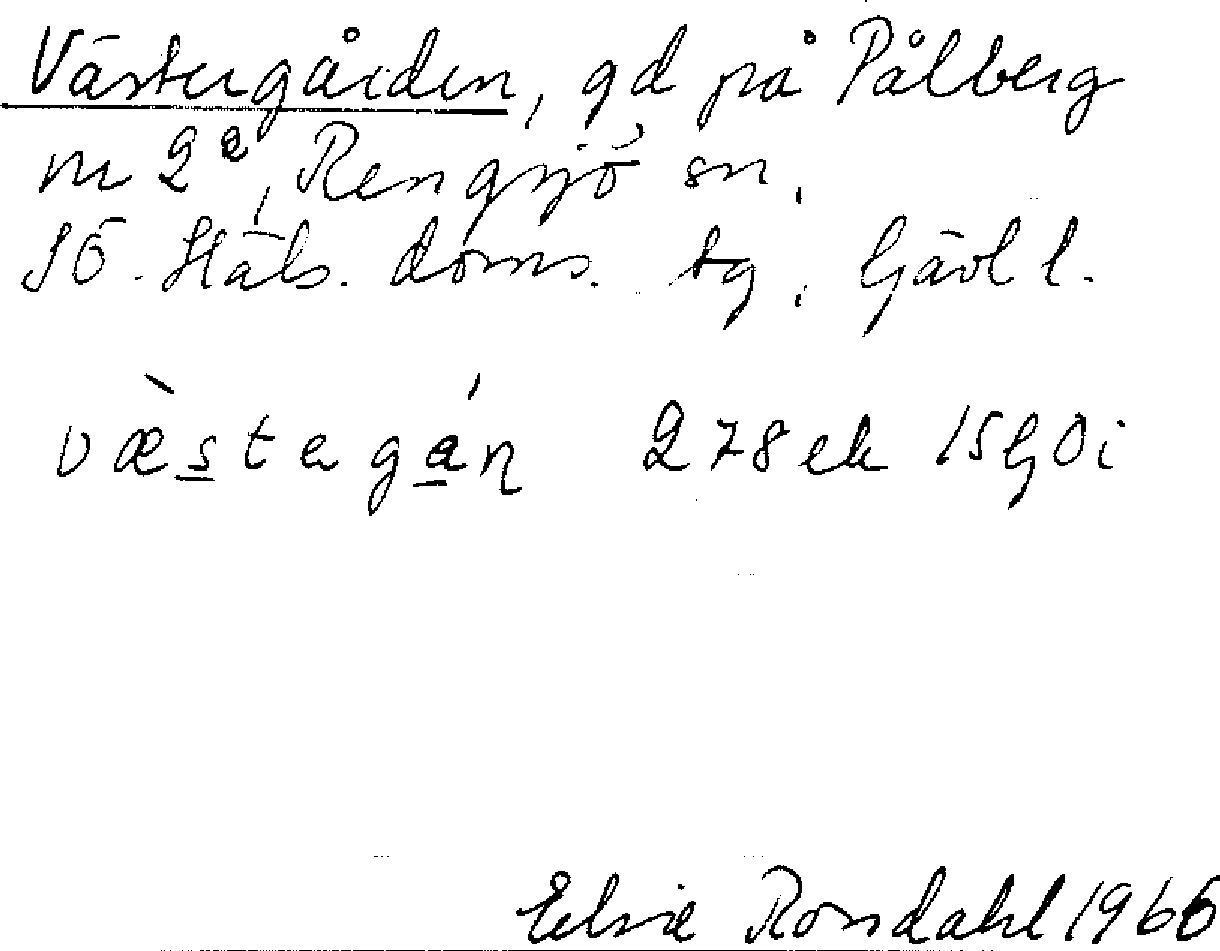 Västergården, gd på Pålberg
nr 2ᵃ, Rengsjö sn,
SÖ. Häls. doms. tg, Gävl l.
væ̀stagán 278 ek 15G0i
Elsie Rosdahl 1966